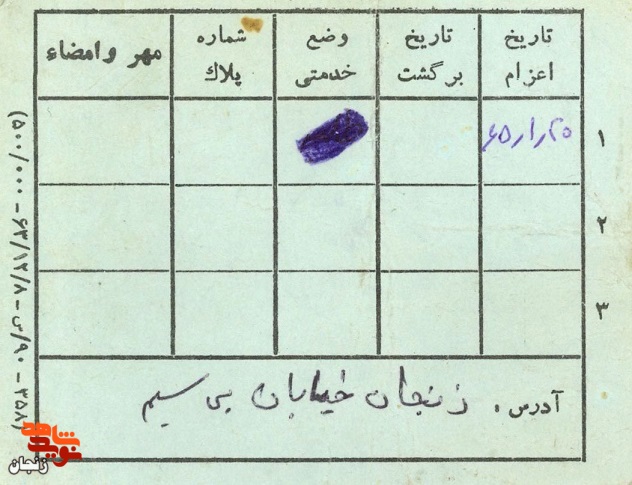 تاریخ اعزام
تاریخ برگشت
وضع خدمتی
شماره پلاك
مهر وامضاء
۱
۲۰ر۱ر۶۵
۲
۳
آدرس: زنجان خیابان بی سیم
(۳۵۸ - ۹۰/س - ۶۳/۱۲/۸ - ۵۰/۰۰۰)
شاهد
نوید
زنجان